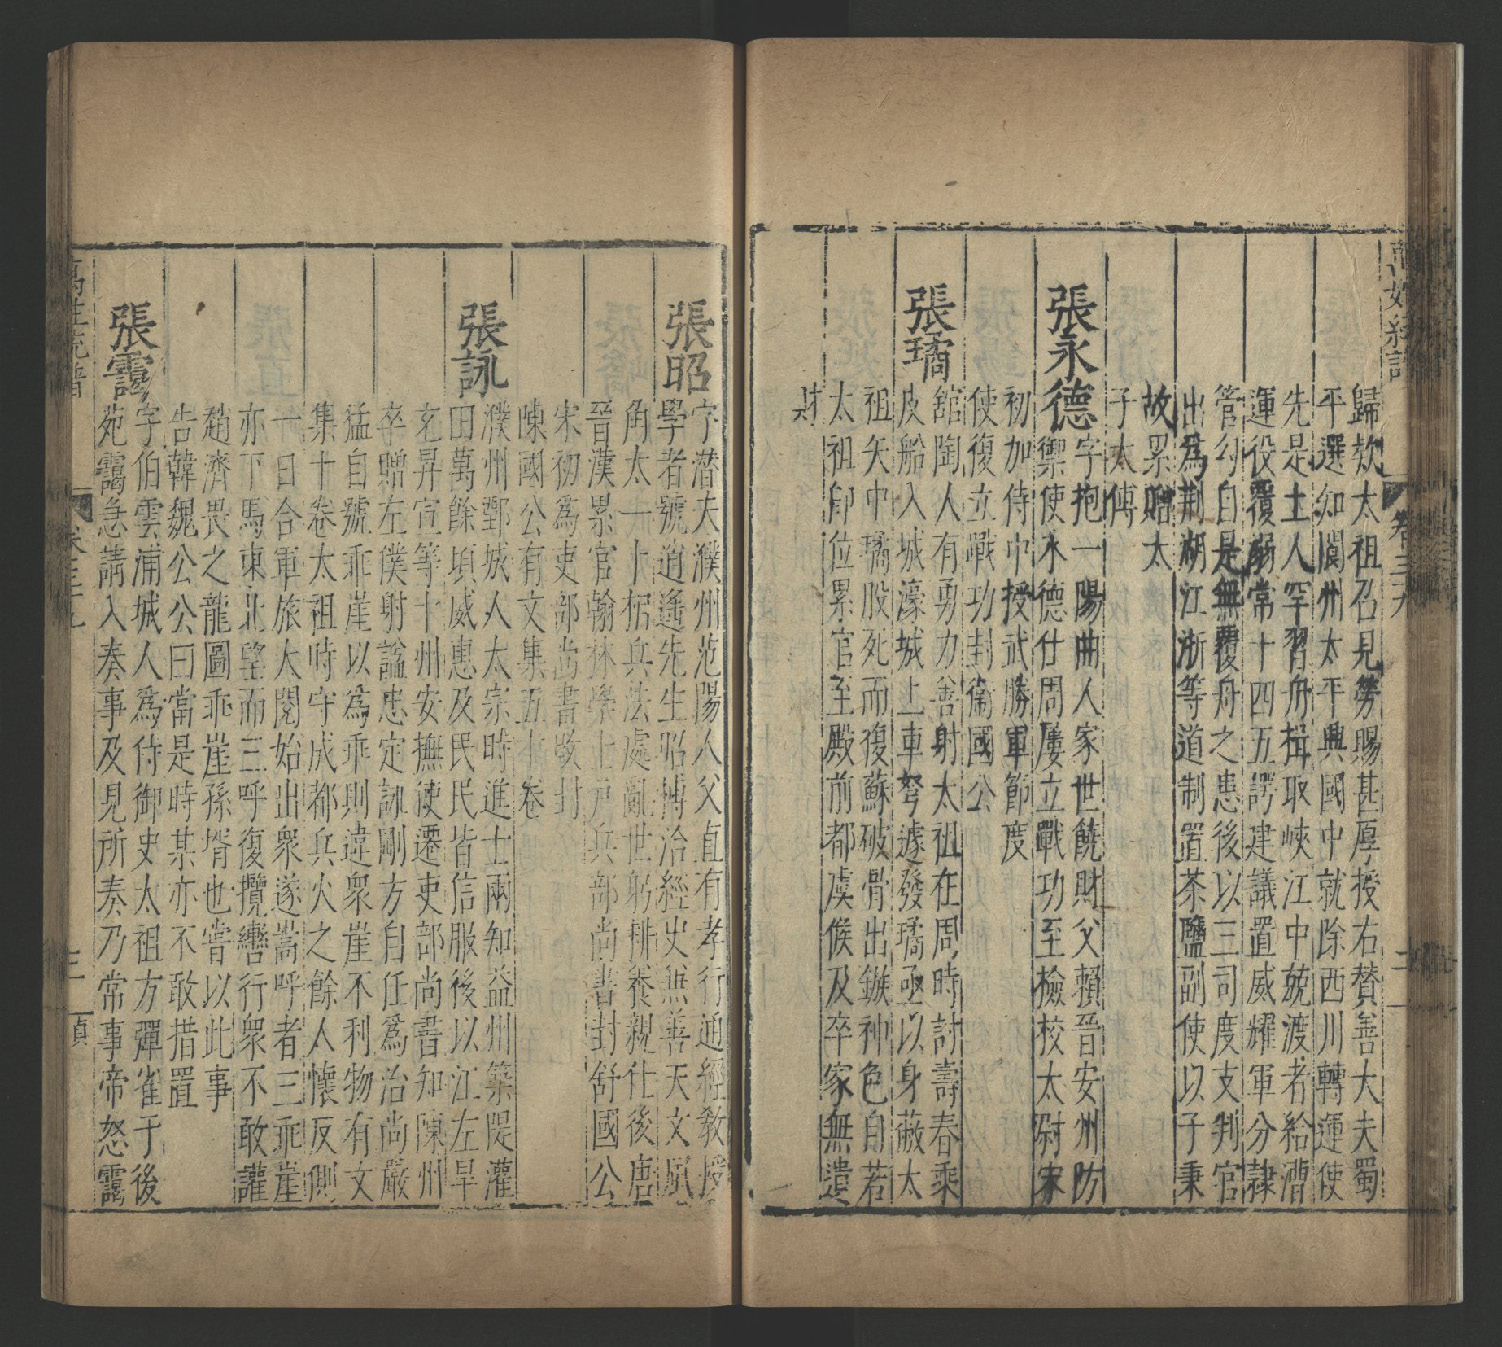 萬姓統譜
卷三十九
二
歸欵太祖召見勞賜甚厚授右賛善大夫蜀
平選知閬州太平興國中就除西川轉運使
先是土人罕習舟楫取峽江中兢渡者給漕
運役覆溺常十四五諤建議置威耀軍分隸
管勾自是無覆舟之患後以三司度支判官
出為荆湖江浙等道制置茶鹽副使以子秉
故累贈太
子太傅
張永德
字抱一陽曲人家世饒財父頴晉安州防
禦使永德仕周屢立戰功至檢校太尉宋
初加侍中授武勝軍節度
使復立戰功封衞國公
張瓊
舘陶人有勇力善射太祖在周時討壽春乘
皮船入城濠城上車弩遽發瓊亟以身蔽太
祖矢中瓊股死而復蘇破骨出鏃神色自若
太祖即位累官至殿前都虞候及卒家無遺
財
張昭
字潜夫濮州范陽人父直有孝行通經教授
學者號逍遙先生昭博洽經史無善天文風
角太一卜相兵法處亂世躬耕養親仕後唐
晉漢累官翰林學士戸兵部尚書封舒國公
宋初為吏部尚書改封
陳國公有文集五十卷
張詠
濮州鄄城人太宗時進士兩知益州築隄灌
田萬餘頃威惠及民民皆信服後以江左旱
充昇宣等十州安撫使遷吏部尚書知陳州
卒贈左僕射謚忠定詠剛方自任為治尚嚴
猛自號乖崖以為乖則違衆崖不利物有文
集十卷太祖時守成都兵火之餘人懷反側
一日合軍旅大閱始出衆遂嵩呼者三乖崖
亦下馬東北望而三呼復攬轡行衆不敢讙
趙濟畏之龍圖乖崖孫壻也嘗以此事
告韓魏公公曰當是時某亦不敢措置
張靄
字伯雲浦城人為侍御史太祖方彈雀于後
苑靄急請入奏事及見所奏乃常事帝怒靄
萬姓統譜
卷三十九
三
貞